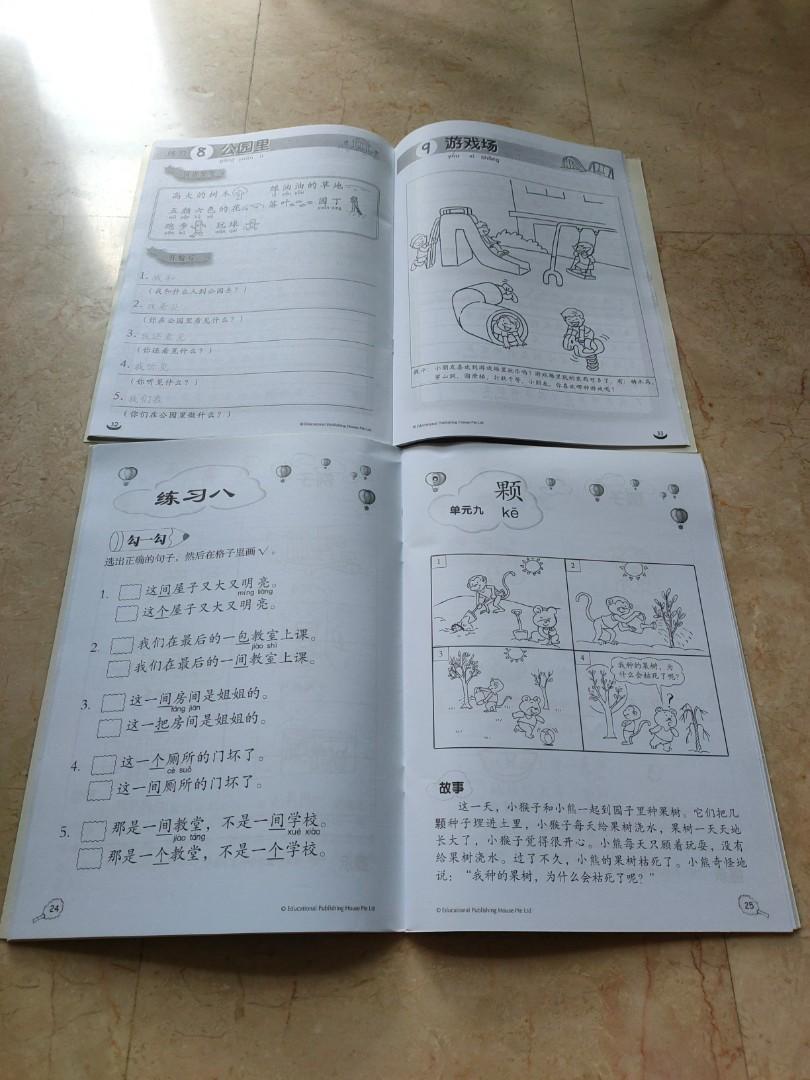 练习 8 公园里
gōng yuán lǐ
高大的树木 绿油油的草地
五颜六色的花 落叶 园丁
跑步 玩球
1. 我和
(我和什么人到公园去?)
2. 我看见
(你在公园里看见什么?)
3. 我还看见
(你还看见什么?)
4. 我听见
(你听见什么?)
5. 我们在
(你们在公园里做什么?)
32
© Educational Publishing House Pte Ltd
9 游戏场
yóu xì chǎng
小朋友喜欢到游戏场里玩乐吗?游戏场里玩的东西可多了,有:
滑滑梯、打秋千等。小朋友,你喜欢哪种游戏呢?
© Educational Publishing House Pte Ltd
33
练习八
勾一勾
选出正确的句子,然后在格子里画✓。
1. 这间屋子又大又明亮。
míng liàng
这个屋子又大又明亮。
2. 我们在最后的一包教室上课。
jiào shì
我们在最后的一间教室上课。
3. 这一间房间是姐姐的。
fáng jiān
这一把房间是姐姐的。
4. 这一个厕所的门坏了。
cè suǒ
这一间厕所的门坏了。
5. 那是一间教堂,不是一间学校。
jiào táng xué xiào
那是一个教堂,不是一个学校。
24
© Educational Publishing House Pte Ltd
单元九 颗
kē
1
2
3
4
我种的果树,为
什么会枯死了呢?
?
故事
这一天,小猴子和小熊一起到园子里种果树。它们把几
颗种子埋进土里,小猴子每天给果树浇水,果树一天天地
长大了,小猴子觉得很开心。小熊每天只顾着玩耍,没有
给果树浇水。过了不久,小熊的果树枯死了。小熊奇怪地
说:“我种的果树,为什么会枯死了呢?”
© Educational Publishing House Pte Ltd
25